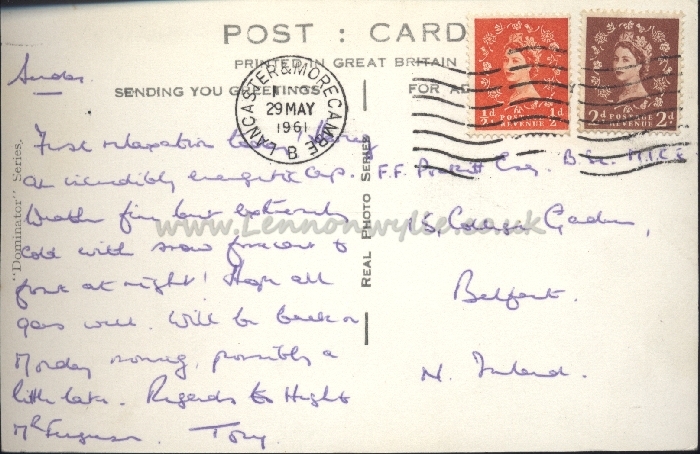 POST : CARD
PRINTED IN GREAT BRITAIN
SENDING YOU GREETINGS
FOR
LANCASTER & MORECAMBE
29 MAY
1961
B
½d POSTAGE REVENUE ½d
2d POSTAGE REVENUE 2d
"Dominator" Series.
REAL PHOTO SERIES
Sunday
First relaxation
an incredibly energetic
Weather fine but extremely
cold with snow forecast &
frost at night! Hope all
goes well. Will be back on
Monday morning, possibly a
little late. Regards to
Mr Ferguson. Tony
F.F. Esq. B.Sc. M.I.C.E
15, College Gardens,
Belfast.
N. Ireland.
www.Lennonwylie.co.uk